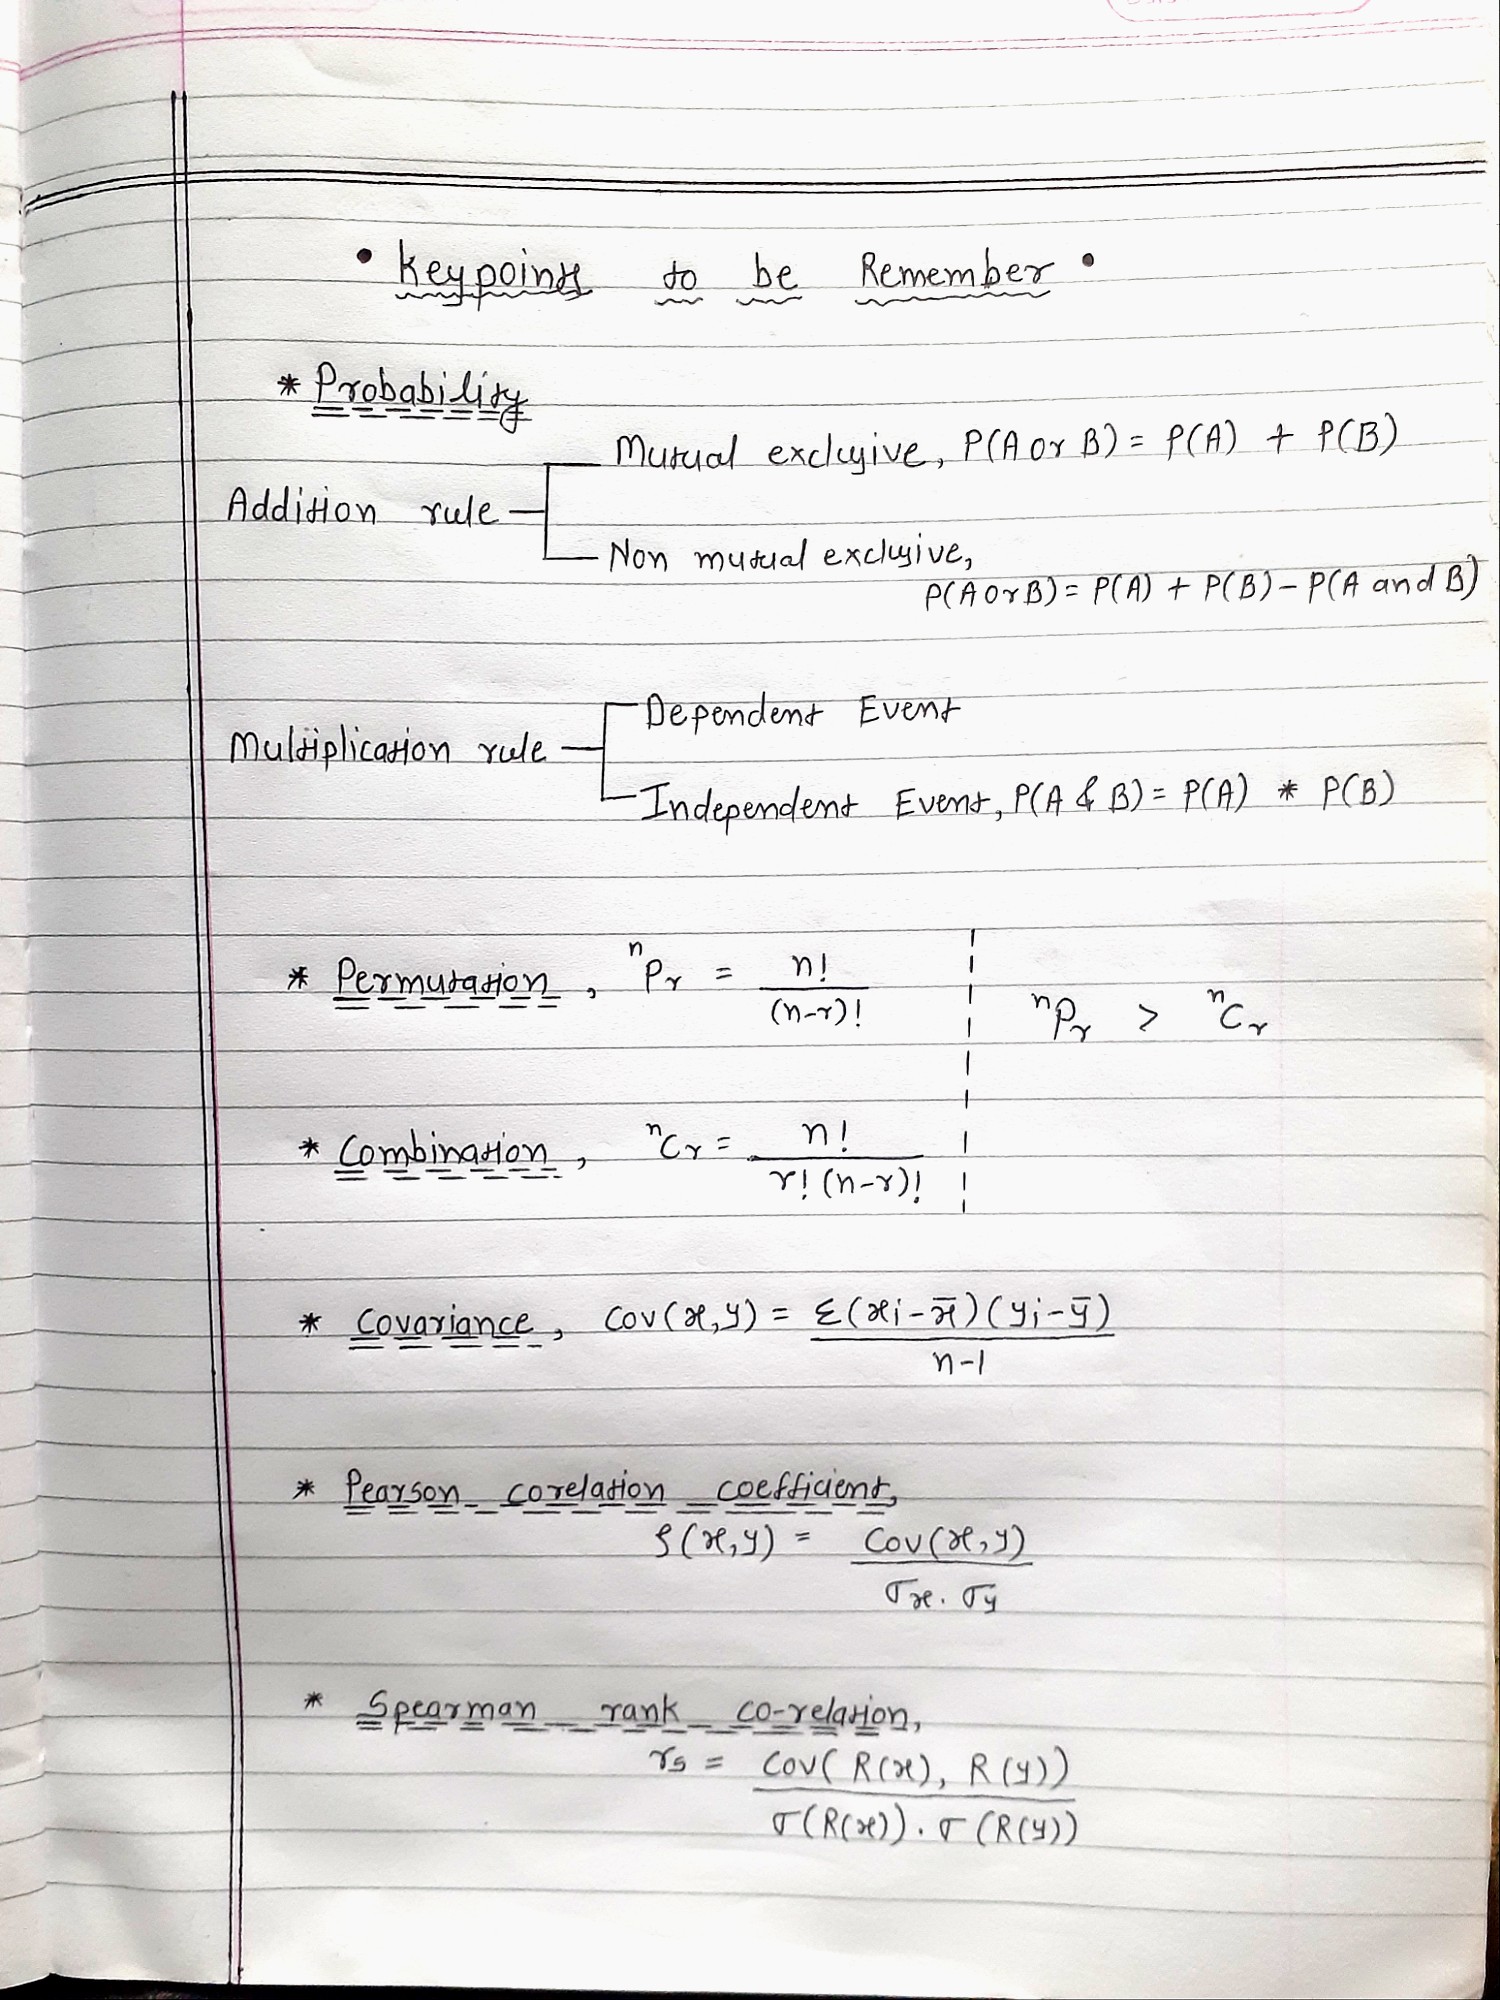 • Keypoints to be Remember •
* Probability
Mutual exclusive, P(A or B) = P(A) + P(B)
Addition rule
Non mutual exclusive,
P(A or B) = P(A) + P(B) - P(A and B)
Dependent Event
Multiplication rule
Independent Event, P(A & B) = P(A) * P(B)
* Permutation, ⁿPᵣ = n! / (n-r)!
ⁿPᵣ > ⁿCᵣ
* Combination, ⁿCᵣ = n! / r! (n-r)!
* Covariance, Cov(x,y) = Σ(xi - x̄)(yi - ȳ) / n-1
* Pearson corelation coefficient,
ρ(x,y) = Cov(x,y) / σx . σy
* Spearman rank co-relation,
rs = Cov( R(x), R(y)) / σ(R(x)) . σ(R(y))